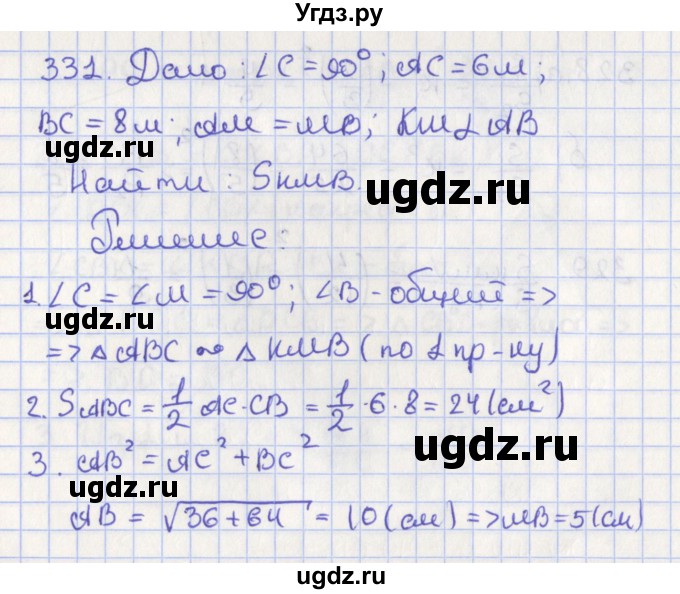 Угдз.ру
331. Дано: ∠C = 90°; AC = 6м;
BC = 8м; AM = MB; KM ⊥ AB
ugdz.ru ugdz.ru
Найти: SKMB.
Решение:
1. ∠C = ∠M = 90°; ∠B - общий =>
ugdz.ru ugdz.ru
=> △ABC ~ △KMB (по 1 пр-ку)
2. SABC = 1/2 AC·CB = 1/2 · 6 · 8 = 24 (см²)
ugdz.ru
3. AB² = AC² + BC²
ugdz.ru
AB = √36+64 = 10 (см) => MB = 5 (см)
ugdz.ru